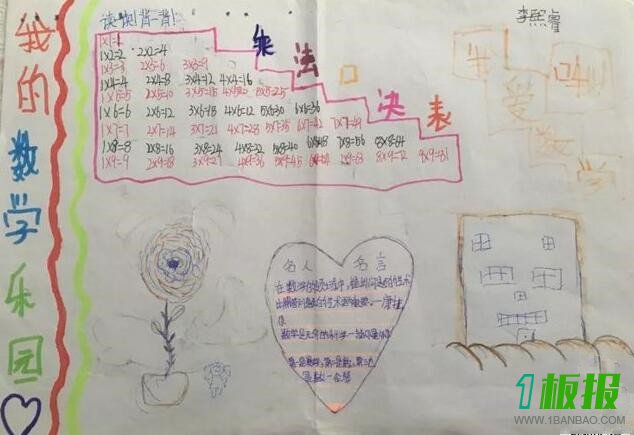 我的数学乐园
读读!背一背!
李熙睿
乘法口决表
1×1=1
1×2=2 2×2=4
1×3=3 2×3=6 3×3=9
1×4=4 2×4=8 3×4=12 4×4=16
1×5=5 2×5=10 3×5=15 4×5=20 5×5=25
1×6=6 2×6=12 3×6=18 4×6=12 5×6=30 6×6=36
1×7=7 2×7=14 3×7=21 4×7=28 5×7=35 6×7=42 7×7=49
1×8=8 2×8=16 3×8=24 4×8=32 5×8=40 6×8=48 7×8=56 8×8=64
1×9=9 2×9=18 3×9=27 4×9=36 5×9=45 7×9=63 8×9=72 9×9=81
爱数学
名人 名言
在数学的领域中,提出问题的艺术
比解答问题的艺术更重要。—康托
尔
数学是无穷的科学—
1板报
WWW.1BANBAO.COM